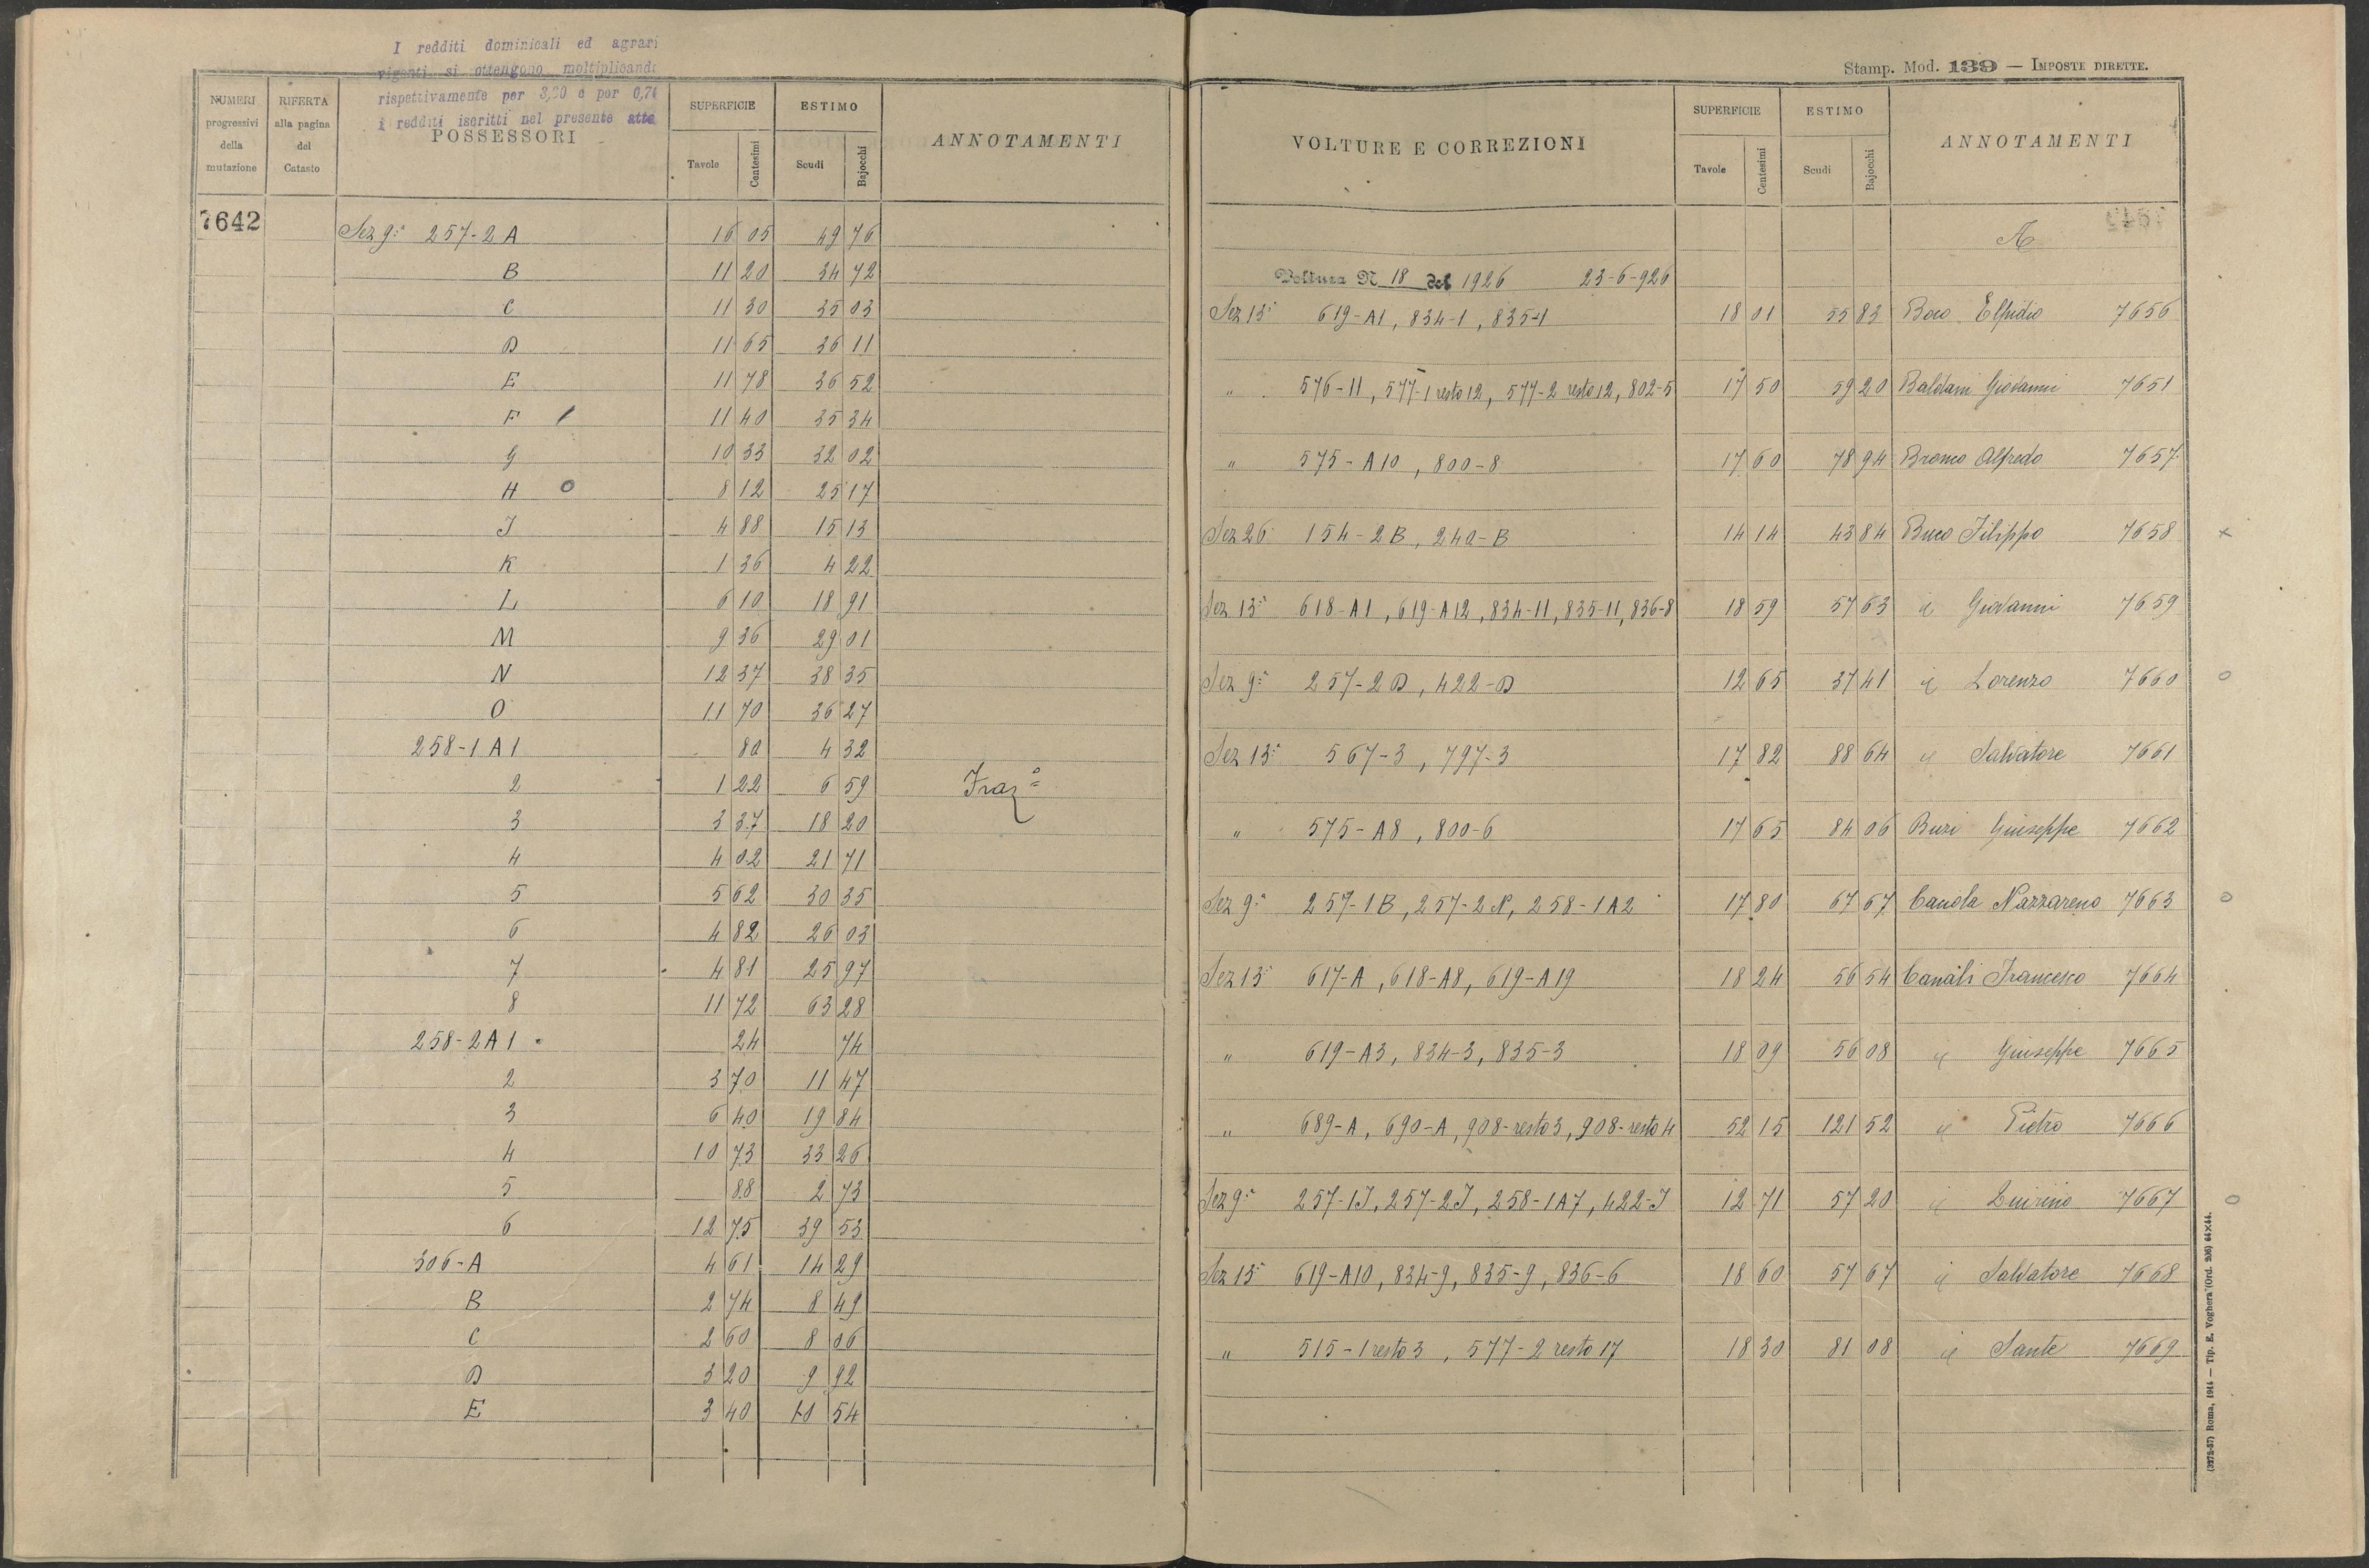 I redditi dominicali ed agrari
vigenti si ottengono moltiplicando
rispettivamente per 3,20 e per 0,70
i redditi iscritti nel presente atto
NUMERI progressivi della mutazione
RIFERTA alla pagina del Catasto
POSSESSORI
SUPERFICIE Tavole Centesimi
ESTIMO Scudi Bajocchi
ANNOTAMENTI
7642 Sez 9ª 257-2 A 16 05 49 76
B 11 20 34 72
C 11 30 35 03
D 11 65 36 11
E 11 78 36 52
F 11 40 35 34
G 10 33 32 02
H 8 12 25 17
J 4 88 15 13
K 1 36 4 22
L 6 10 18 91
M 9 36 29 01
N 12 37 38 35
O 11 70 36 27
258-1 A 1 80 4 32
2 1 22 6 59 Fraz.
3 3 37 18 20
4 4 02 21 71
5 5 62 30 35
6 4 82 26 03
7 4 81 25 97
8 11 72 63 28
258-2 A 1 24 74
2 3 70 11 47
3 6 40 19 84
4 10 73 33 26
5 88 2 73
6 12 75 39 53
306-A 4 61 14 29
B 2 74 8 49
C 2 60 8 06
D 3 20 9 92
E 3 40 10 54
Stamp. Mod. 139 — IMPOSTE DIRETTE.
VOLTURE E CORREZIONI
SUPERFICIE Tavole Centesimi
ESTIMO Scudi Bajocchi
ANNOTAMENTI
A
Voltura N 18 del 1926 23-6-926
Sez 13ª 619-A1, 834-1, 835-1 18 01 55 83 Boco Elpidio 7656
" 576-11, 577-1 resto 12, 577-2 resto 12, 802-5 17 50 59 20 Baldani Giovanni 7651
" 575-A10, 800-8 17 60 78 94 Bronco Alfredo 7657
Sez 26 154-2B, 240-B 14 14 43 84 Buco Filippo 7658 x
Sez 13ª 618-A1, 619-A12, 834-11, 835-11, 836-8 18 59 57 63 id Giovanni 7659
Sez 9ª 257-2D, 422-D 12 65 37 41 id Lorenzo 7660 o
Sez 13ª 567-3, 797-3 17 82 88 64 id Salvatore 7661
" 575-A8, 800-6 17 65 84 06 Buzi Giuseppe 7662
Sez 9ª 257-1B, 257-2N, 258-1A2 17 80 67 67 Canola Nazzareno 7663 o
Sez 13ª 617-A, 618-A8, 619-A19 18 24 56 54 Canali Francesco 7664
" 619-A3, 834-3, 835-3 18 09 56 08 id Giuseppe 7665
" 689-A, 690-A, 908-resto 3, 908-resto 4 52 15 121 52 id Pietro 7666
Sez 9ª 257-1J, 257-2J, 258-1A7, 422-J 12 71 57 20 id Quirino 7667 o
Sez 13ª 619-A10, 834-9, 835-9, 836-6 18 60 57 67 id Salvatore 7668
" 515-1 resto 3, 577-2 resto 17 18 30 81 08 id Sante 7669
(3272-57) Roma, 1914 — Tip. E. Voghera (Ord. 206) 64×44.